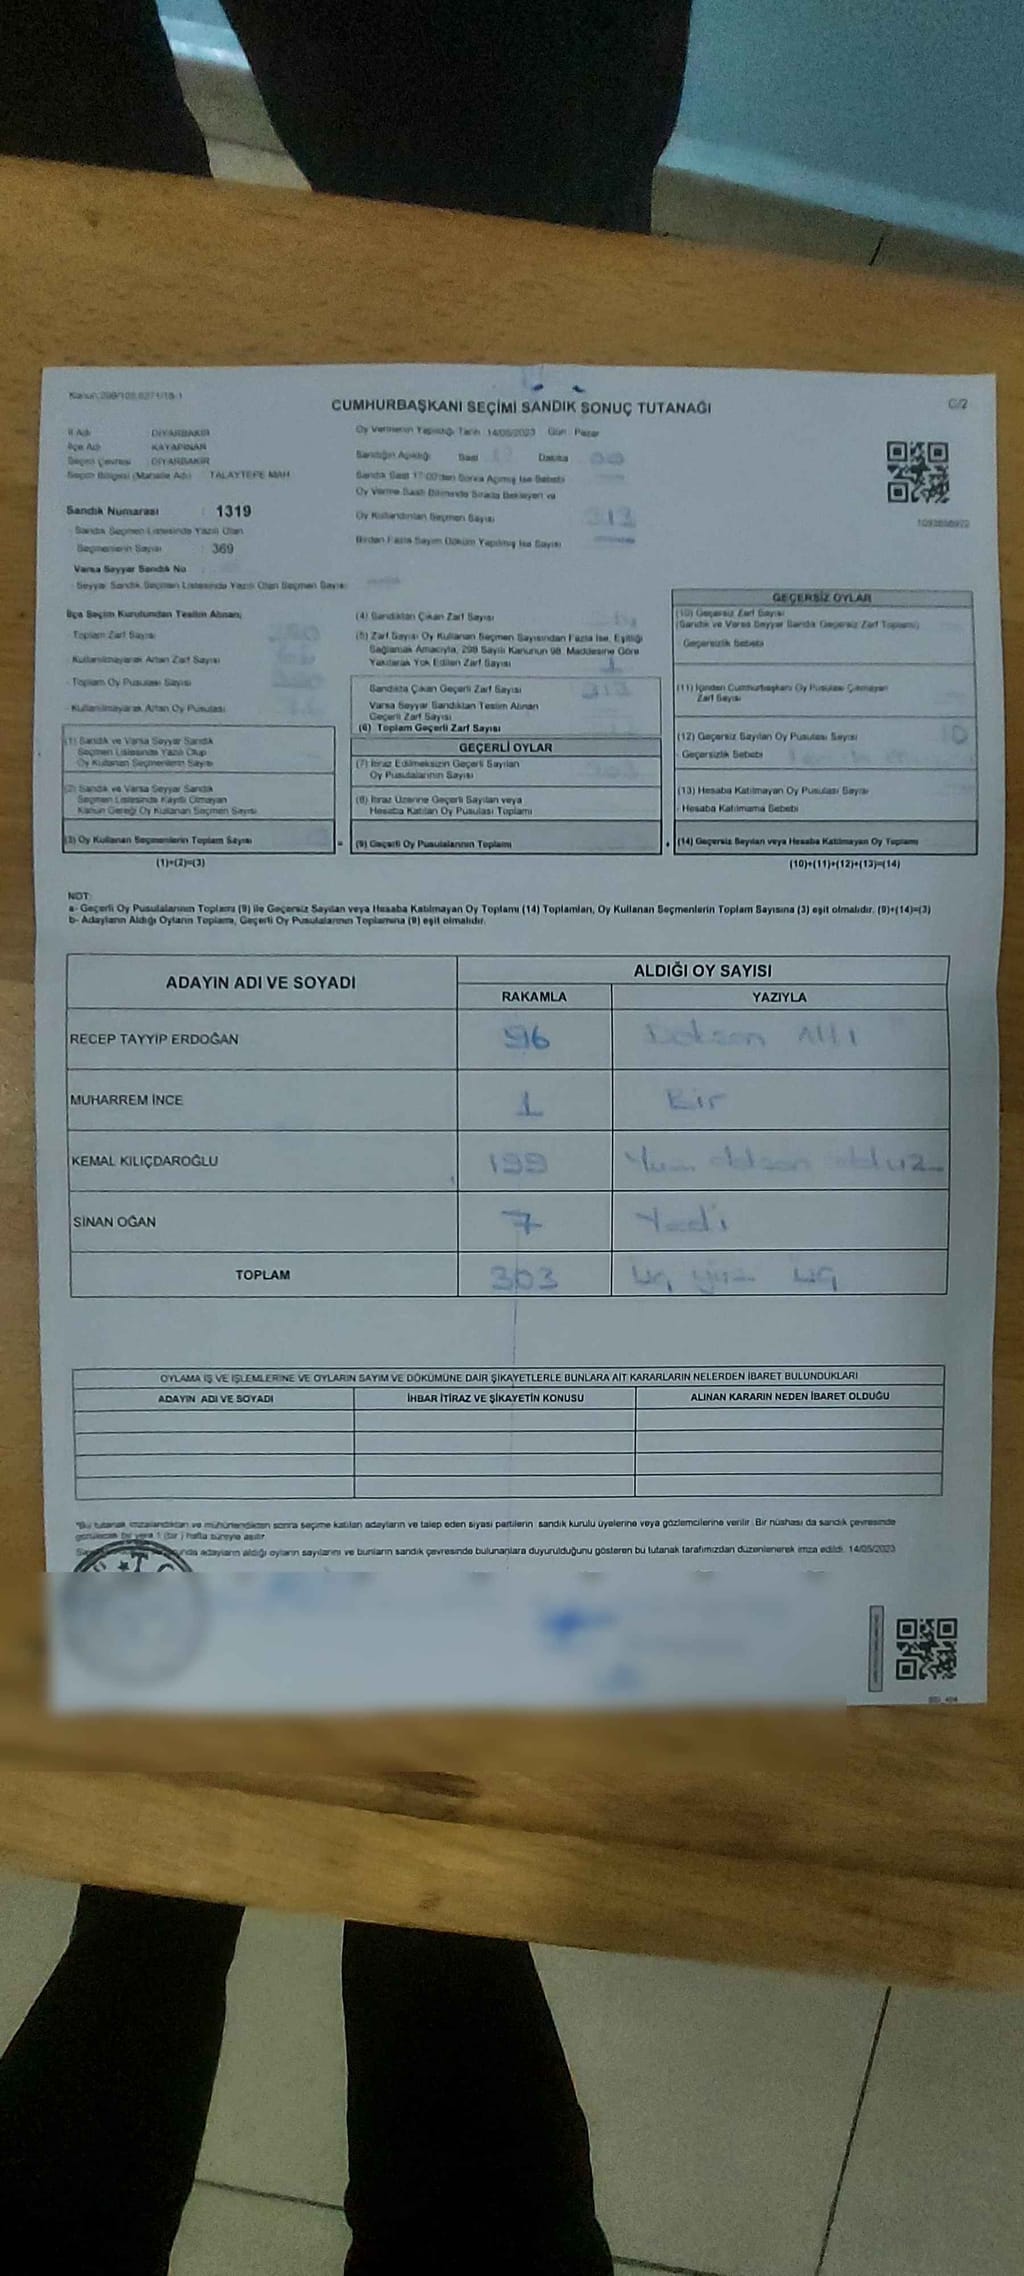 CUMHURBAŞKANI SEÇİMİ SANDIK SONUÇ TUTANAĞI
C/2
İl Adı : DİYARBAKIR
İlçe Adı : KAYAPINAR
Seçim Çevresi : DİYARBAKIR
Seçim Bölgesi (Mahalle Adı) : TALAYTEPE MAH.
Sandık Numarası : 1319
Sandık Seçmen Listesinde Yazılı Olan
Seçmenlerin Sayısı : 369
Varsa Seyyar Sandık No
Seyyar Sandık Seçmen Listesinde Yazılı Olan Seçmen Sayısı
Oy Vermenin Yapıldığı Tarih : 14/05/2023 Gün : Pazar
Sandığın Açıldığı Saat Dakika
Sandık Saat 17:00'den Sonra Açılmış İse Sebebi
Oy Verme Saati Bitiminde Sırada Bekleyen ve
Oy Kullandırılan Seçmen Sayısı 313
Birden Fazla Sayım Döküm Yapılmış İse Sayısı
İlçe Seçim Kurulundan Teslim Alınan;
Toplam Zarf Sayısı
Kullanılmayarak Artan Zarf Sayısı
Toplam Oy Pusulası Sayısı
Kullanılmayarak Artan Oy Pusulası
(1) Sandık ve Varsa Seyyar Sandık
Seçmen Listesinde Yazılı Olup
Oy Kullanan Seçmenlerin Sayısı
(2) Sandık ve Varsa Seyyar Sandık
Seçmen Listesinde Kayıtlı Olmayan
Kanun Gereği Oy Kullanan Seçmen Sayısı
(3) Oy Kullanan Seçmenlerin Toplam Sayısı
(1)+(2)=(3)
(4) Sandıktan Çıkan Zarf Sayısı
(5) Zarf Sayısı Oy Kullanan Seçmen Sayısından Fazla İse, Eşitliği
Sağlamak Amacıyla, 298 Sayılı Kanunun 98. Maddesine Göre
Yakılarak Yok Edilen Zarf Sayısı
Sandıkta Çıkan Geçerli Zarf Sayısı 313
Varsa Seyyar Sandıktan Teslim Alınan
Geçerli Zarf Sayısı
(6) Toplam Geçerli Zarf Sayısı
GEÇERLİ OYLAR
(7) İtiraz Edilmeksizin Geçerli Sayılan
Oy Pusulalarının Sayısı 303
(8) İtiraz Üzerine Geçerli Sayılan veya
Hesaba Katılan Oy Pusulası Toplamı
(9) Geçerli Oy Pusulalarının Toplamı
GEÇERSİZ OYLAR
(10) Geçersiz Zarf Sayısı
(Sandık ve Varsa Seyyar Sandık Geçersiz Zarf Toplamı)
Geçersizlik Sebebi
(11) İçinden Cumhurbaşkanı Oy Pusulası Çıkmayan
Zarf Sayısı
(12) Geçersiz Sayılan Oy Pusulası Sayısı 10
Geçersizlik Sebebi
(13) Hesaba Katılmayan Oy Pusulası Sayısı
Hesaba Katılmama Sebebi
(14) Geçersiz Sayılan veya Hesaba Katılmayan Oy Toplamı
(10)+(11)+(12)+(13)=(14)
NOT:
a- Geçerli Oy Pusulalarının Toplamı (9) ile Geçersiz Sayılan veya Hesaba Katılmayan Oy Toplamı (14) Toplamları, Oy Kullanan Seçmenlerin Toplam Sayısına (3) eşit olmalıdır. (9)+(14)=(3)
b- Adayların Aldığı Oyların Toplamı, Geçerli Oy Pusulalarının Toplamına (9) eşit olmalıdır.
ADAYIN ADI VE SOYADI
ALDIĞI OY SAYISI
RAKAMLA YAZIYLA
RECEP TAYYİP ERDOĞAN 96 Doksan Altı
MUHARREM İNCE 1 Bir
KEMAL KILIÇDAROĞLU 199 Yüz doksan dokuz
SİNAN OĞAN 7 Yedi
TOPLAM 303 Üç yüz üç
OYLAMA İŞ VE İŞLEMLERİNE VE OYLARIN SAYIM VE DÖKÜMÜNE DAİR ŞİKAYETLERLE BUNLARA AİT KARARLARIN NELERDEN İBARET BULUNDUKLARI
ADAYIN ADI VE SOYADI İHBAR İTİRAZ VE ŞİKAYETİN KONUSU ALINAN KARARIN NEDEN İBARET OLDUĞU
*Bu tutanak imzalandıktan ve mühürlendikten sonra seçime katılan adayların ve talep eden siyasi partilerin sandık kurulu üyelerine veya gözlemcilerine verilir. Bir nüshası da sandık çevresinde
görülecek bir yere 1 (bir) hafta süreyle asılır.
adayların aldığı oyların sayılarını ve bunların sandık çevresinde bulunanlara duyurulduğunu gösteren bu tutanak tarafımızdan düzenlenerek imza edildi. 14/05/2023